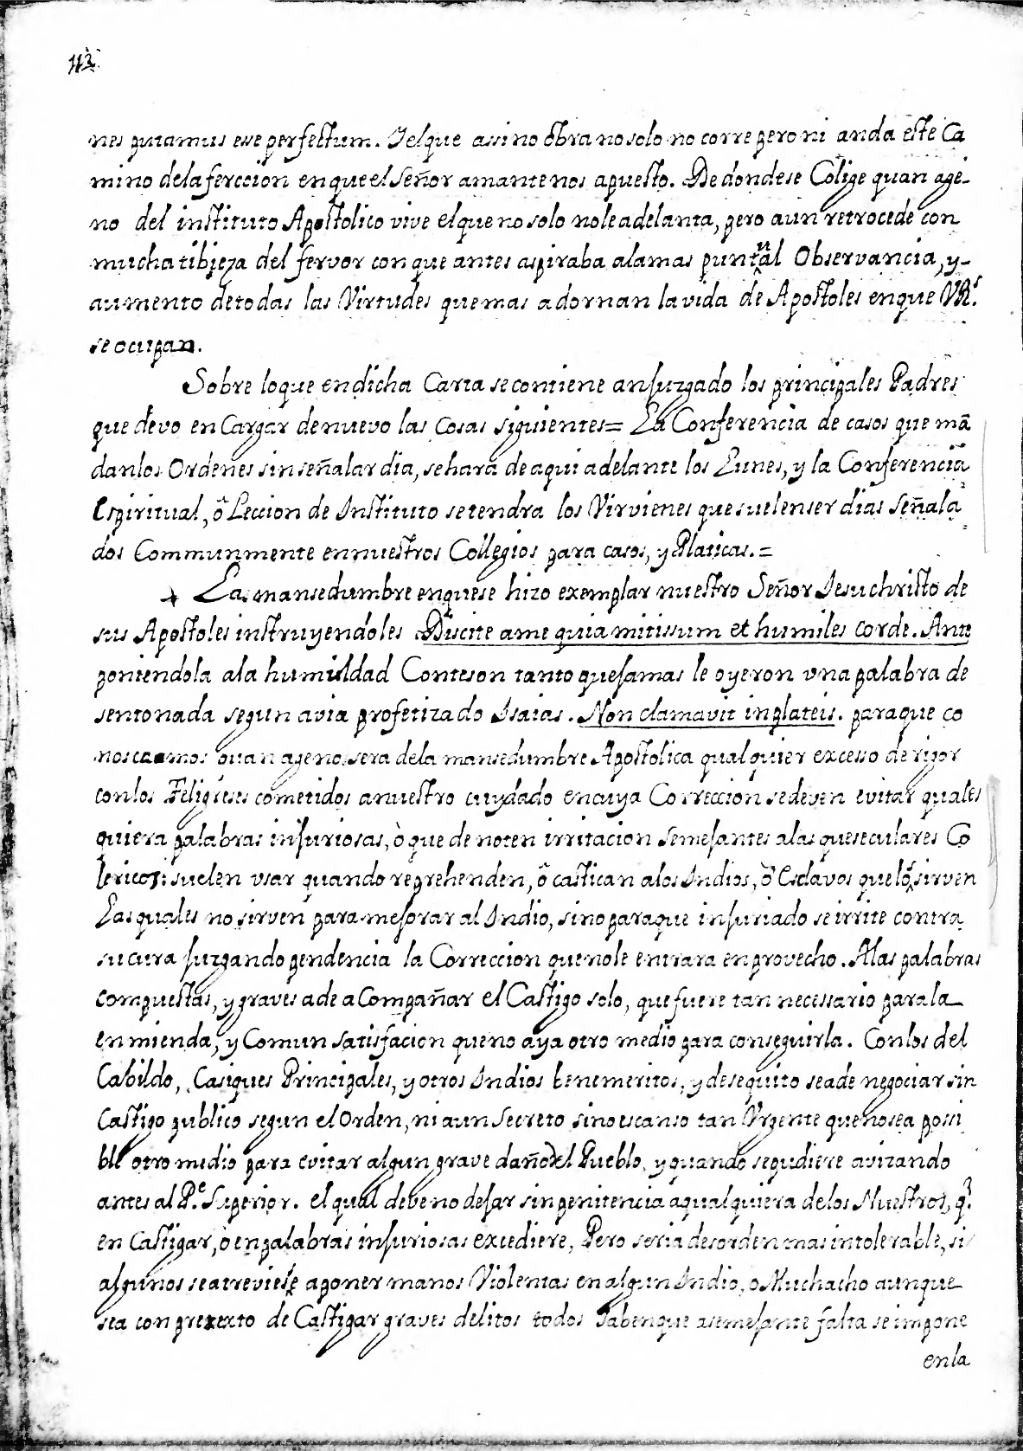 113.
nes putamus esse perfectum. Y el que assi no obra no solo no corre pero ni anda este Ca
mino de la ferccion en que el Señor amante nos apuesto. De donde se Colige quan age-
no del instituto Apostolico vive el que no solo no le adelanta, pero aun retrocede con
mucha tibieza del fervor con que antes aspiraba a la mas puntual Observancia, y-
aumento de todas las Virtudes que mas adornan la vida de Apostoles en que VRs.
se ocupan.
Sobre lo que en dicha Carta se contiene an juzgado los principales Padres
que devo en Cargar de nuevo las Cosas siguientes= La Conferencia de casos que mã
dan los Ordenes sin señalar dia, se hara de aqui adelante los Lunes, y la Conferencia
Espiritual, ô Leccion de Instituto se tendra los Virvienes que suelen ser dias Señala
dos Communmente en nuestros Collegios para casos, y Platicas.=
+ La mansedumbre en que se hizo exemplar nuestro Señor Jesuchristo de
sus Apostoles instruyendoles Discite a me quia mitissum et humiles corde. Ante
poniendola a la humildad Con teson tanto que jamas le oyeron vna palabra de
sentonada segun avia profetizado Isaias. Non clamavit in plateis. para que co
noscamos quan ageno sera de la mansedumbre Apostolica qualquier excesso de rigor
con los Feligreses cometidos a nuestro cuydado en cuya Correccion se deven evitar quales
quiera palabras injuriosas, ò que denoten irritacion Semejantes a las que seculares Co
lericos: suelen vsar quando reprehenden, ô castican a los Indios, ò Esclavos que los sirven
Las quales no sirven para mejorar al Indio, sino para que injuriado se irrite contra
su cura juzgando pendencia la Correccion que no le entrara en provecho. A las palabras
compuestas, y graves a de aCompañar el Castigo solo, que fuere tan necessario para la
enmienda, y Comun satisfacion que no aya otro medio para conseguirla. Con los del
Cabildo, Casiques Principales, y otros Indios benemeritos, y de sequito se a de negociar sin
Castigo publico segun el Orden, ni aun Secreto sino es caso tan Vrgente que no sea possi
ble otro medio para evitar algun grave daño del Pueblo, y quando se pudiere avizando
antes al Pe. Superior. el qual debe no dejar sin penitencia a qualquiera de los Nuestros, q.
en Castigar, ò en palabras injuriosas excediere, Pero seria desorden mas intolerable, si
algunos se atreviese a poner manos Violentas en algun Indio, o Muchacho aunque
sea con pretexto de Castigar graves delitos todos Saben que a semejante falta se impone
en la